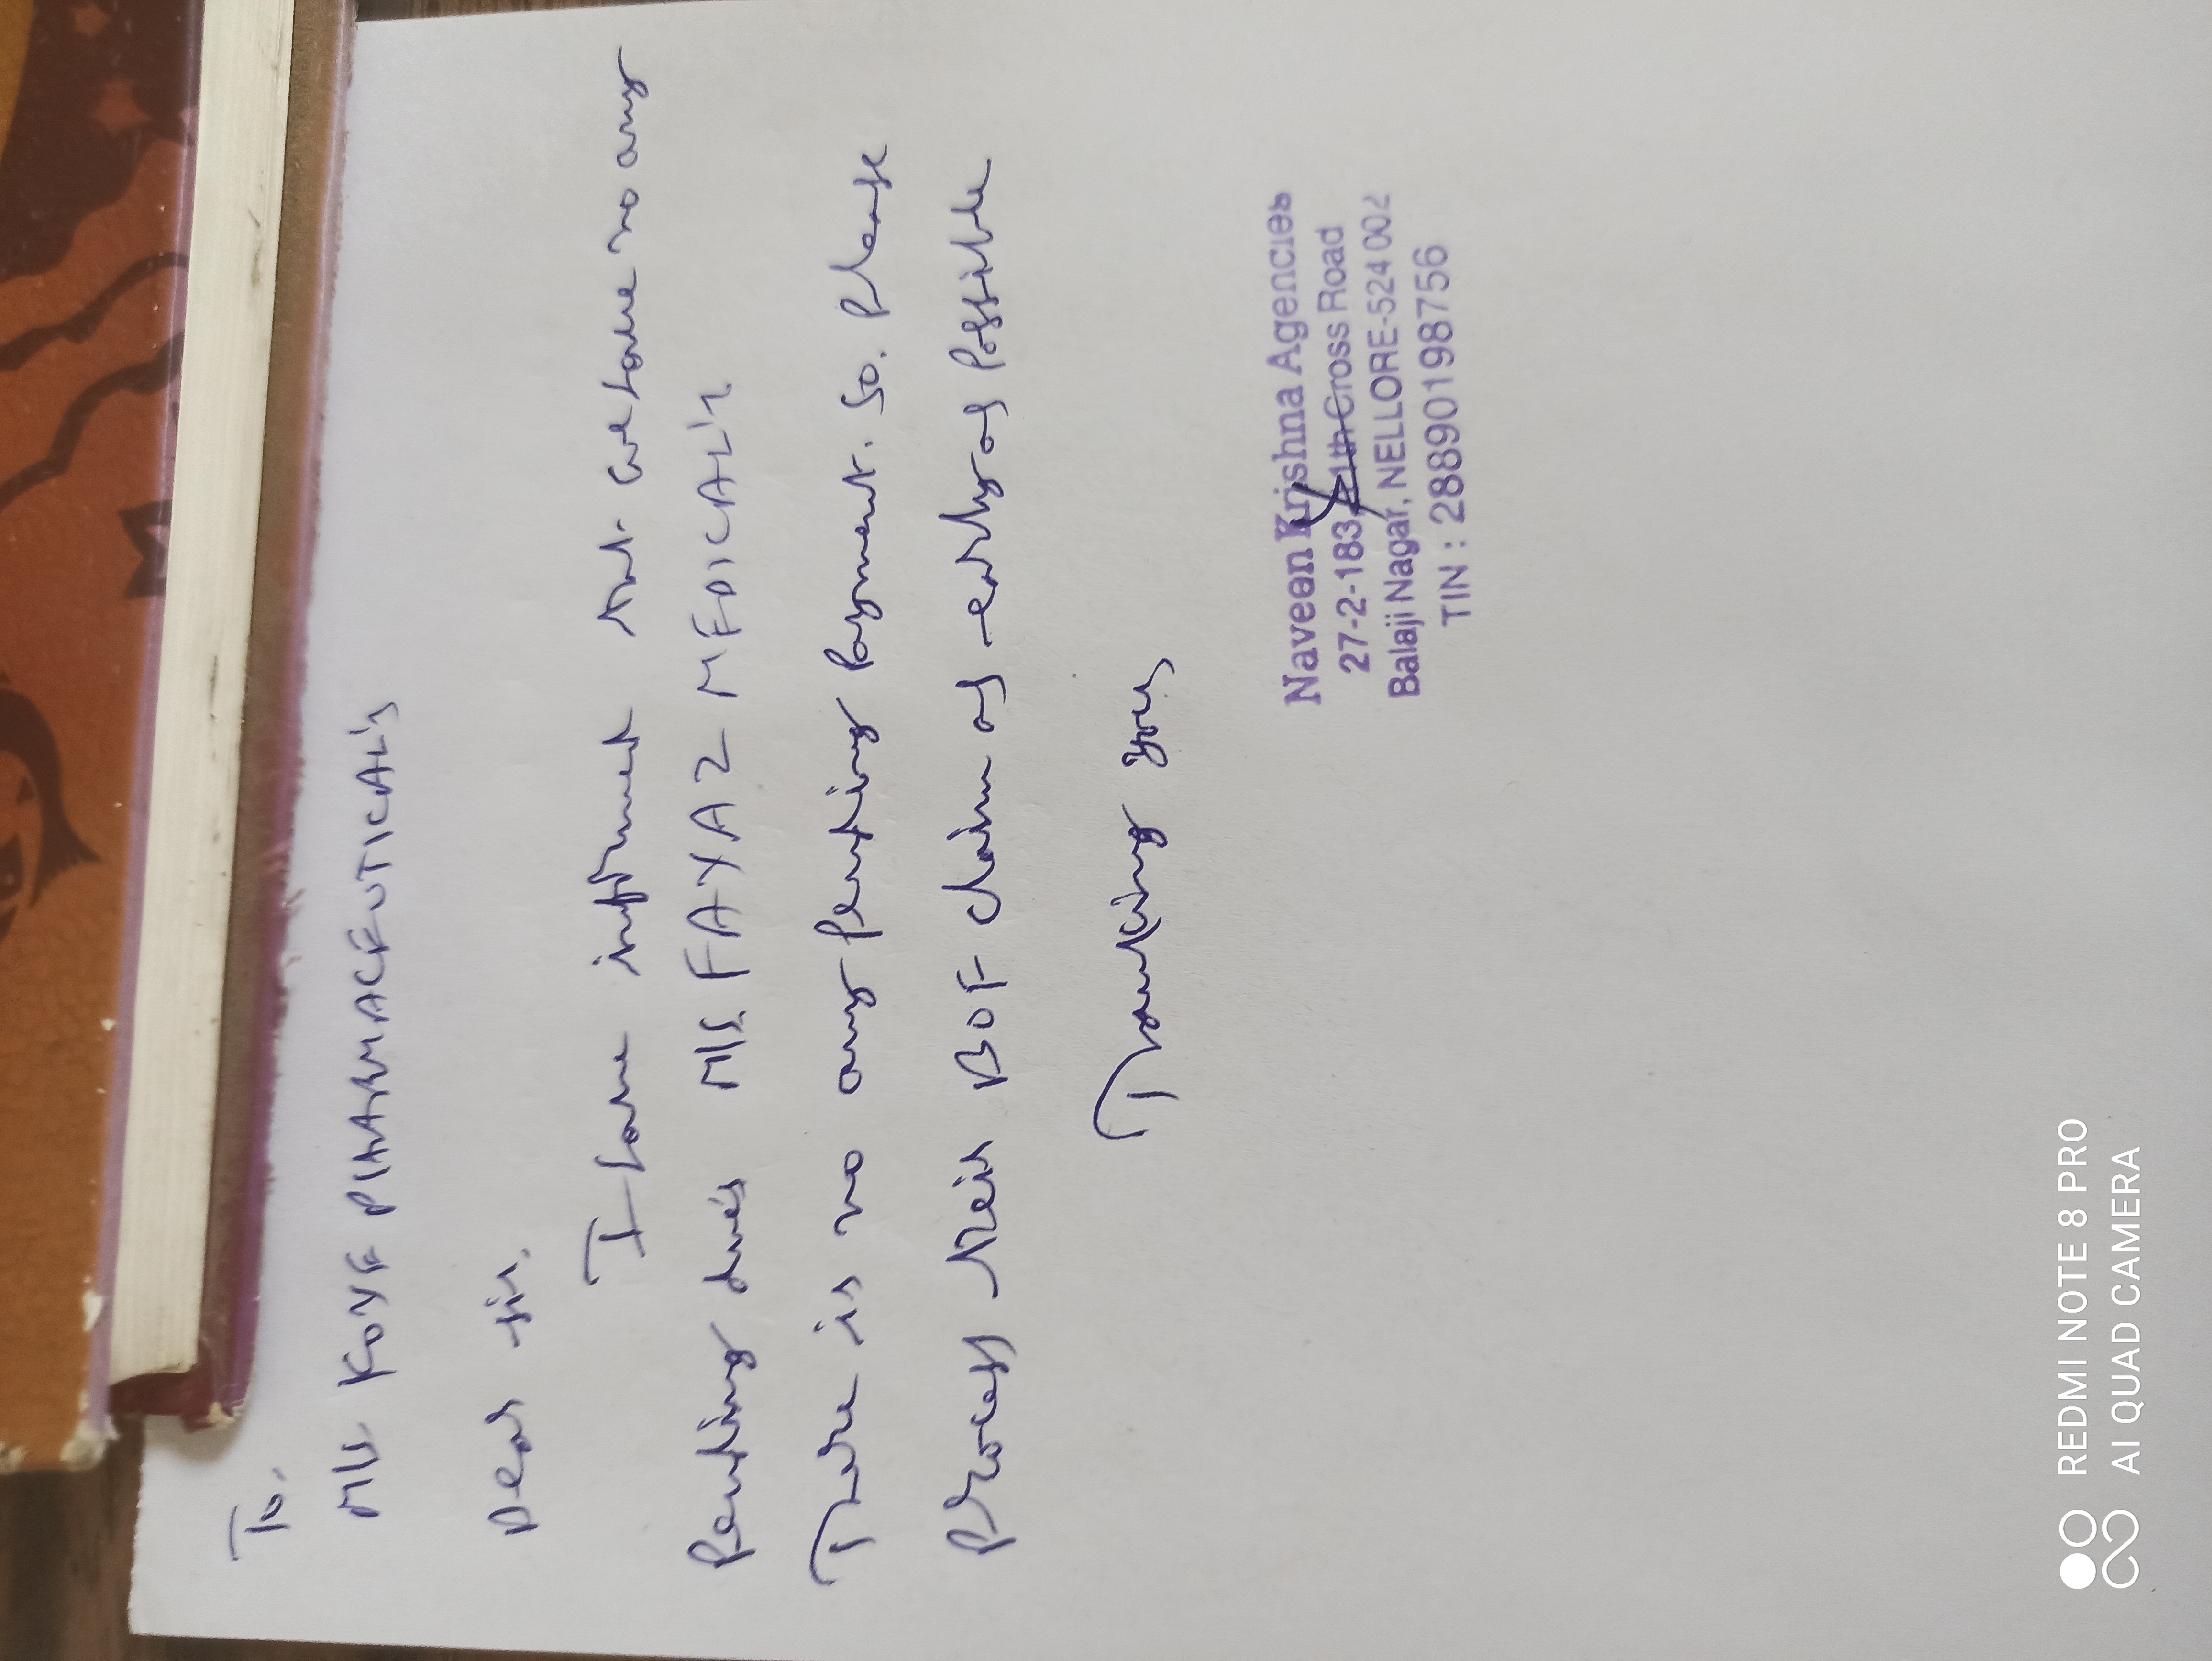 To.
M/s KOYE PHARMACEUTICAL's
Dear sir.
I have informed that we have no any
Pending due's M/s. FAYAZ MEDICAL's
There is no any pending Payment. So. Please
Process their BOE claim as early as Possible
Thanking you,
Naveen Krishna Agencies
27-2-183, Cross Road
Balaji Nagar, NELLORE-524 002
TIN : 28890198756
REDMI NOTE 8 PRO
AI QUAD CAMERA